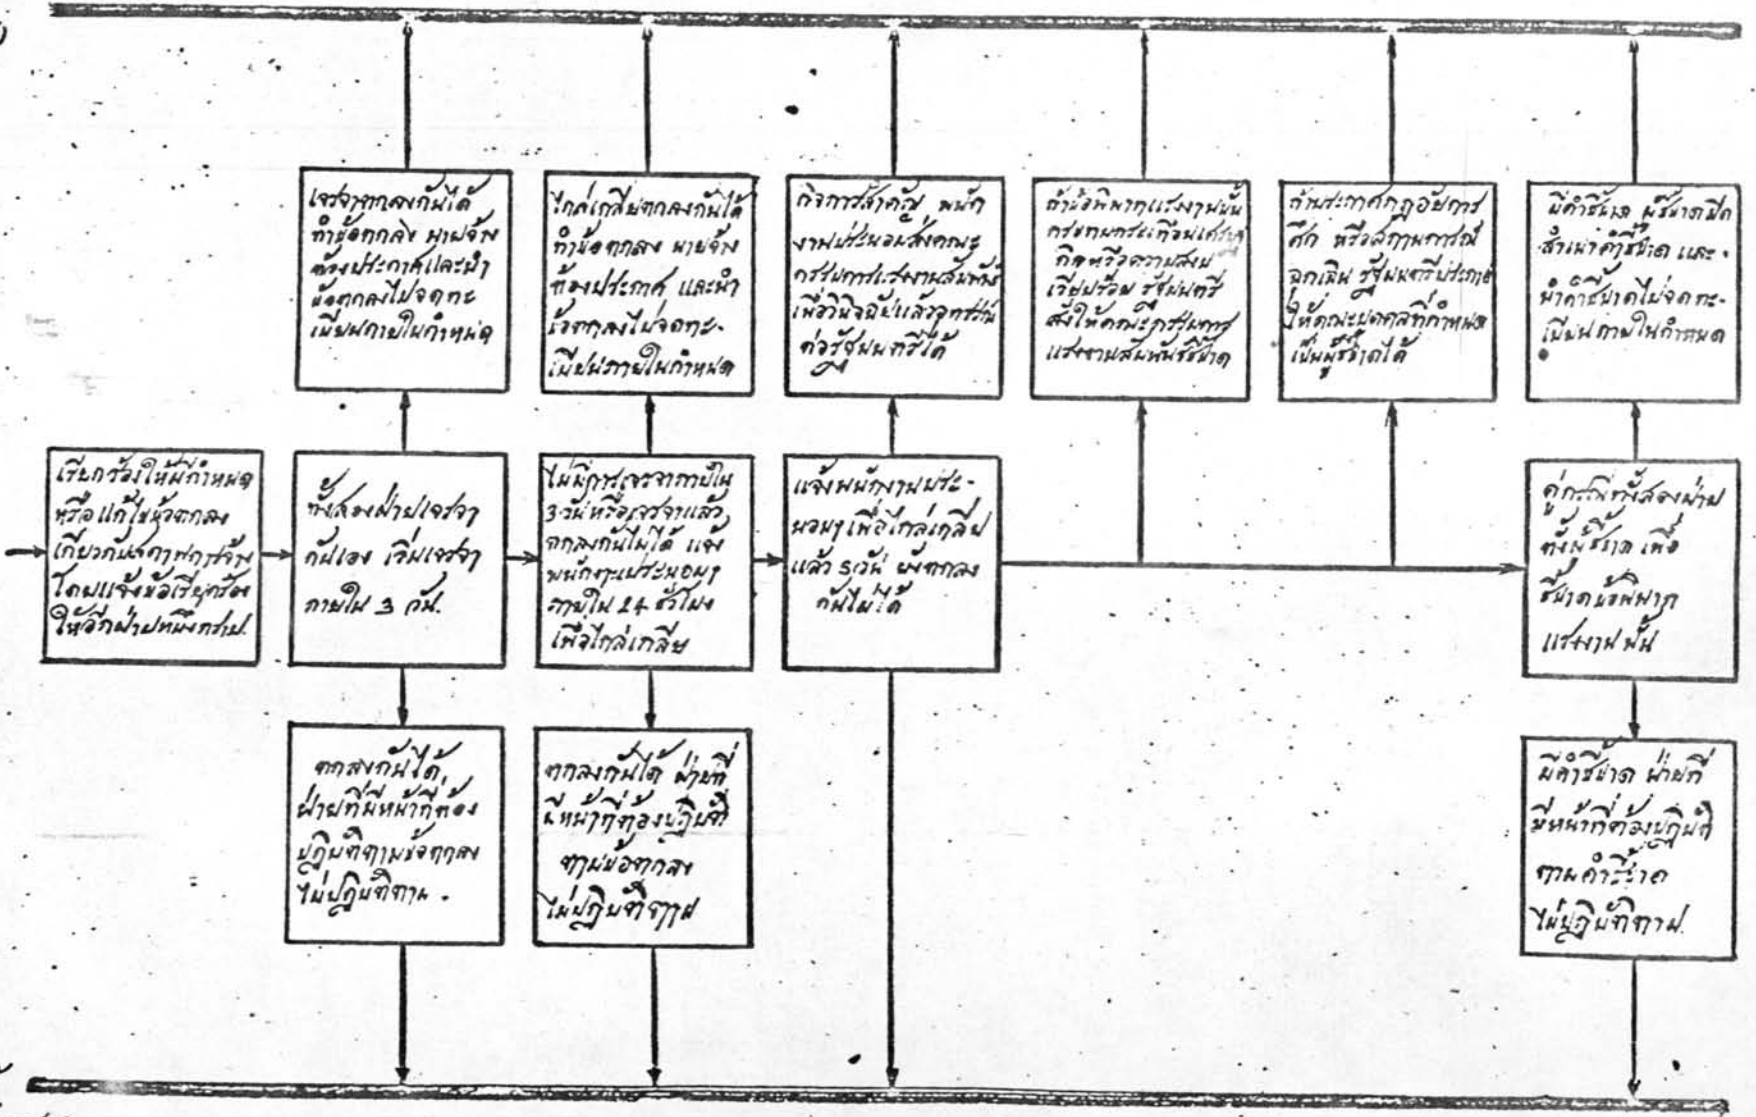 เจรจาตกลงกันได้
ทำข้อตกลง นายจ้าง
ต้องประกาศและนำ
ข้อตกลงไปจดทะ
เบียนภายในกำหนด
ไกล่เกลี่ยตกลงกันได้
ทำข้อตกลง นายจ้าง
ต้องประกาศ และนำ
ข้อตกลงไปจดทะ-
เบียนภายในกำหนด
กิจการสำคัญ พนัก
งานประนอมส่งคณะ
กรรมการแรงงานสัมพันธ์
เพื่อวินิจฉัยแล้วอุทธรณ์
ต่อรัฐมนตรีได้
ถ้าข้อพิพาทแรงงานนั้น
กระทบกระเทือนเศรษฐ
กิจหรือความสงบ
เรียบร้อย รัฐมนตรี
สั่งให้คณะกรรมการ
แรงงานสัมพันธ์ชี้ขาด
ถ้าประกาศกฎอัยการ
ศึก หรือสถานการณ์
ฉุกเฉิน รัฐมนตรีประกาศ
ให้คณะบุคคลที่กำหนด
เป็นผู้ชี้ขาดได้
มีคำชี้ขาด ผู้ชี้ขาดปิด
สำเนาคำชี้ขาด และ
นำคำชี้ขาดไปจดทะ-
เบียนภายในกำหนด
เรียกร้องให้มีกำหนด
หรือแก้ไขข้อตกลง
เกี่ยวกับสภาพการจ้าง
โดยแจ้งข้อเรียกร้อง
ให้อีกฝ่ายหนึ่งทราบ.
ทั้งสองฝ่ายเจรจา
กันเอง เริ่มเจรจา
ภายใน 3 วัน.
ไม่มีการเจรจาภายใน
3 วันหรือเจรจาแล้ว
ตกลงกันไม่ได้ แจ้ง
พนักงานประนอมฯ
ภายใน 24 ชั่วโมง
เพื่อไกล่เกลี่ย
แจ้งพนักงานประ-
นอมฯ เพื่อไกล่เกลี่ย
แล้ว 5 วัน ยังตกลง
กันไม่ได้
คู่กรณีทั้งสองฝ่าย
ตั้งผู้ชี้ขาด เพื่อ
ชี้ขาดข้อพิพาท
แรงงานนั้น
ตกลงกันได้
ฝ่ายที่มีหน้าที่ต้อง
ปฏิบัติตามข้อตกลง
ไม่ปฏิบัติตาม.
ตกลงกันได้ ฝ่ายที่
มีหน้าที่ต้องปฏิบัติ
ตามข้อตกลง
ไม่ปฏิบัติตาม
มีคำชี้ขาด ฝ่ายที่
มีหน้าที่ต้องปฏิบัติ
ตามคำชี้ขาด
ไม่ปฏิบัติตาม.